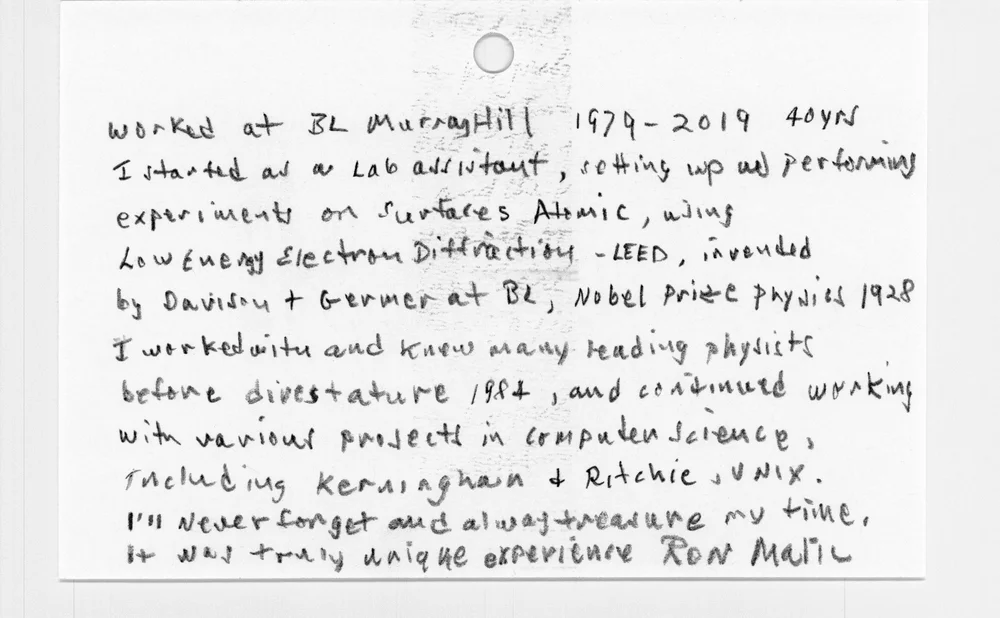 worked at BL Murray Hill 1979-2019 40yrs
I started as a Lab assistant, setting up and performing
experiments on Surfaces Atomic, using
Low Energy Electron Diffraction - LEED, invended
by Davison + Germer at BL, Nobel Prize Physics 1928
I worked with and knew many leading physists
before divestature 1984, and continued working
with various projects in computer science,
Including Kerninghan & Ritchie, UNIX.
I'll Never forget and always treasure my time,
It was truly unique experience Ron